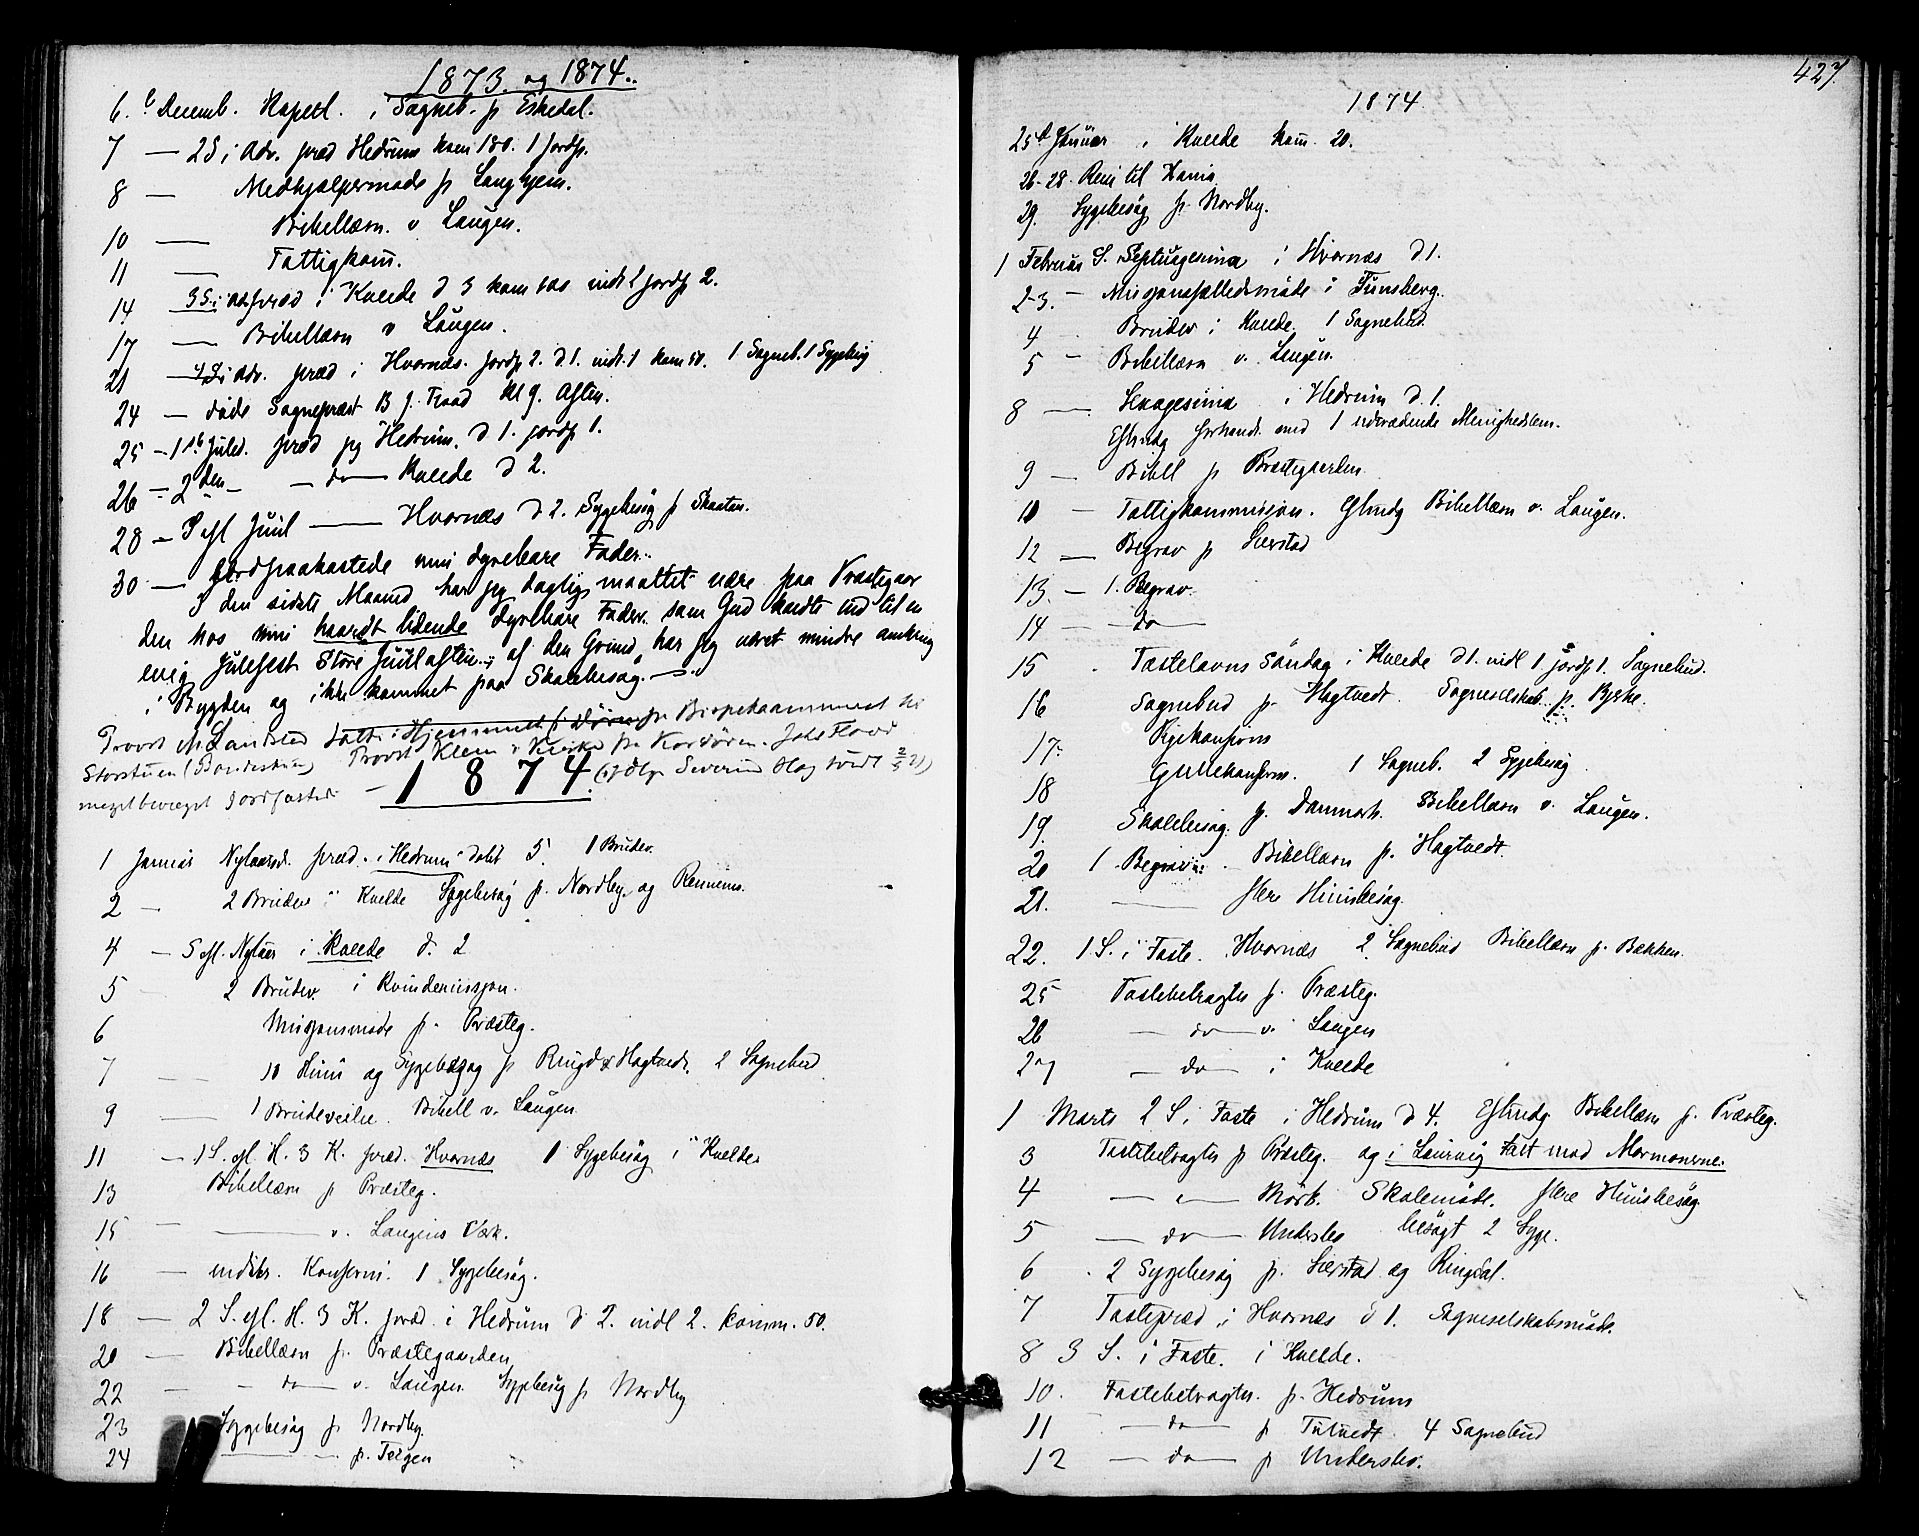 1873. og 1874.
6. Decemb. Kapell. i Sogneb. p Eskedal.
7 — 2 S i Adv. præd Hedrum kom 180. 1 Jordp.
8 — Medhjælpermøde p Haugen.
10 — Bibellæsn. v Laugen.
11 — Fattigkom.
14 3 S. i Adv præd i Kvelde d 3 kom indt 1 Jordp 2.
17 — Bibellæsn v Laugen.
21 — 4 S i Adv. præd i Hvarnæs. Jordp 2. d 1. indt. 1 kom 50. 1 Sogneb. 1 Sygebesøg
24 — døde Sognepræst B J. Flood Kl 9. Aften.
25 — 1ste Juled. præd paa Hedrum. d 1. Jordp 1.
26 — 2den — do — Kvelde d 2.
28 — S efl Juul — Hvarnæs d 2. Sygebesøg p Skaaten.
30 — Jordpaakastede min dyrebare Fader.
I den sidste Maaned har jeg daglig maattet være paa Præstegaar
den hos min haardt lidende dyrebare Fader som Gud kaldte ind til en
evig Julefest Store Juulaften; af den Grund har jeg været mindre omkring
i Bygden og ikke kommet paa Skolebesøg. —
Provst M Landstad talte i Hjemmet p Bispekammeret til
Storstuen Provst Klem i Kirke p Kordøren. Jobs Flood
meget bevæget Jordfæstede — 1874. Severin Høg
1 Januar Nytaarsd. præd. i Hedrum dobt 5. 1 Brudev.
2 — 2 Brudev i Kvelde Sygebesøg p. Nordby og Rennem.
4 — S efl. Nytaar i Kvelde d. 2
5 2 Brudev. i Kvindemissjon.
6 Missjonsmøde p. Præsteg.
7 — 10 Huus og Sygebesøg p Ringdal Hagtvedt. 2 Sognebud
9 — 1 Brudevielse. Bibell v. Laugen
11 — 1 S. efl. H. 3 K. præd. Hvarnæs 1 Sygebesøg i Kvelde
13 Bibellæsn p Præsteg.
15 — v. Laugens Værk.
16 — indskr. Konfirm. 1 Sygebesøg.
18 — 2 S. efl. H. 3 K. præd. i Hedrum d 2. indl 2. komm. 50.
20 — Bibellæsn p. Præstegaarden
22 — — do — v. Laugen. Sygebesøg p Nordby
23 Sygebesøg p Nordby.
24 — — p. Teigen
427
1874
25de Januar i Kvelde kom. 20.
26-28. Reise til Xania
29. Sygebesøg p Nordby.
1 Februar S. Septuagesima i Hvarnæs d 1.
2-3. — Missjonsfællesmøde i Tunsberg.
4 Brudev i Kvelde. 1 Sognebud.
5 — Bibellæsn v. Laugen.
8 — Sexagesima i Hedrum d. 1.
Eftmdg forhandl. med 1 udtrædende Menighedslem.
9 — Bibell p Præstegaarden
10 — Fattigkommission. Eftmdg Bibellæsn v. Laugen.
12 — Begrav p Sierstad
13 — 1. Begrav.
14 — — do —
15 . Fastelavns Søndag i Kvelde d 1. indl 1. Jordp 1. Sognebud.
16 Sognebud p Hagtvedt. Sogneselskab p. Bjerke.
17 Pigekonfirm
18 Guttekonfirm. 1 Sogneb. 2 Sygebesøg
19 Skolebesøg p. Danmark. Bibellæsn v. Laugen.
20 1. Begrav. Bibellæsn p. Hagtvedt.
21. — flere Huusbesøg.
22. 1 S. i Faste. Hvarnæs 2 Sognebud Bibellæsn p. Bakken.
25 Fastebetragtn p. Præsteg.
26 — do — v. Laugen
27 — do — i Kvelde
1 Marts 2 S. i Faste i Hedrum d 4. Eftmdg Bibellæsn p. Præsteg.
3 Fastebetragtn p Præsteg. og i Laurvig talt mod Mormonerne.
4 — — Mørk. Skolemøde. flere Huusbesøg
5 — do — Undersbo besøgt 2 Syge.
6 . 2 Sygebesøg p. Sierstad og Ringdal.
7 Fastepræd. i Hvarnæs d 1. Sogneselskabsmøde.
8 3 S. i Faste. i Kvelde.
10. Fastebetragtn. p. Hedrum
11 — do — p Tutvedt 4 Sognebud
12 — do — p Undersbo.